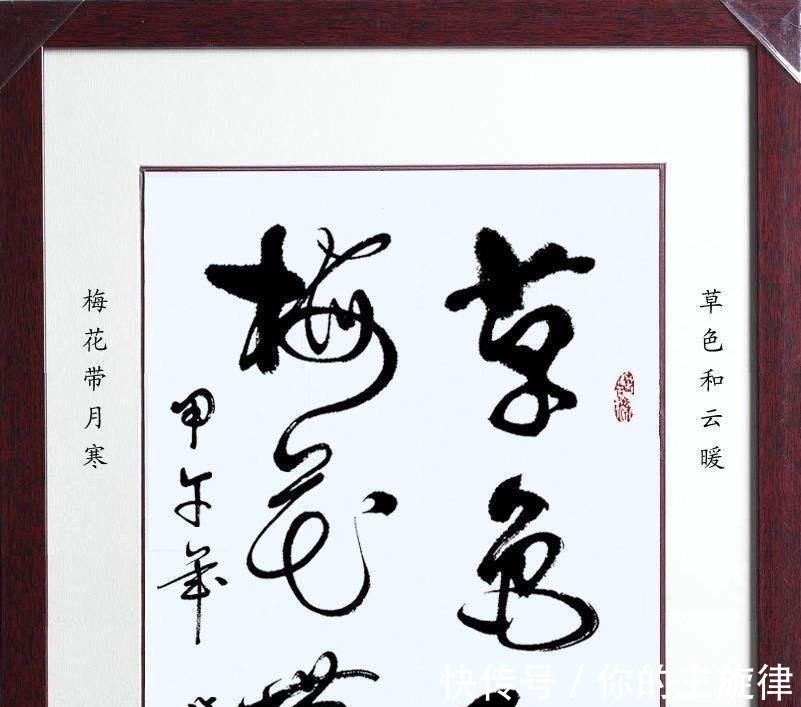 草色和云暖
草色
梅花带
甲午年
梅花带月寒
快传号/你的主旋律